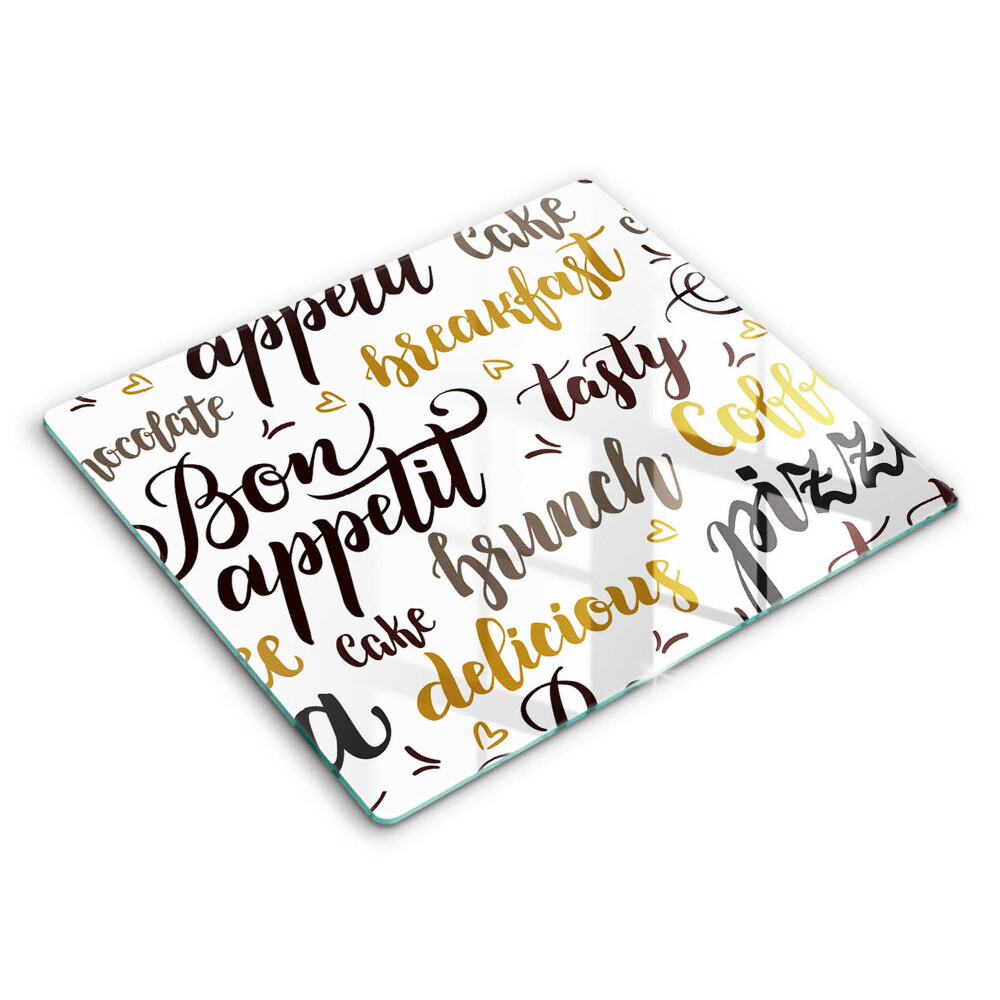 cake
appetit
breakfast
tasty
chocolate
Coff
Bon
appetit
brunch
pizz
ee
cake
delicious
a